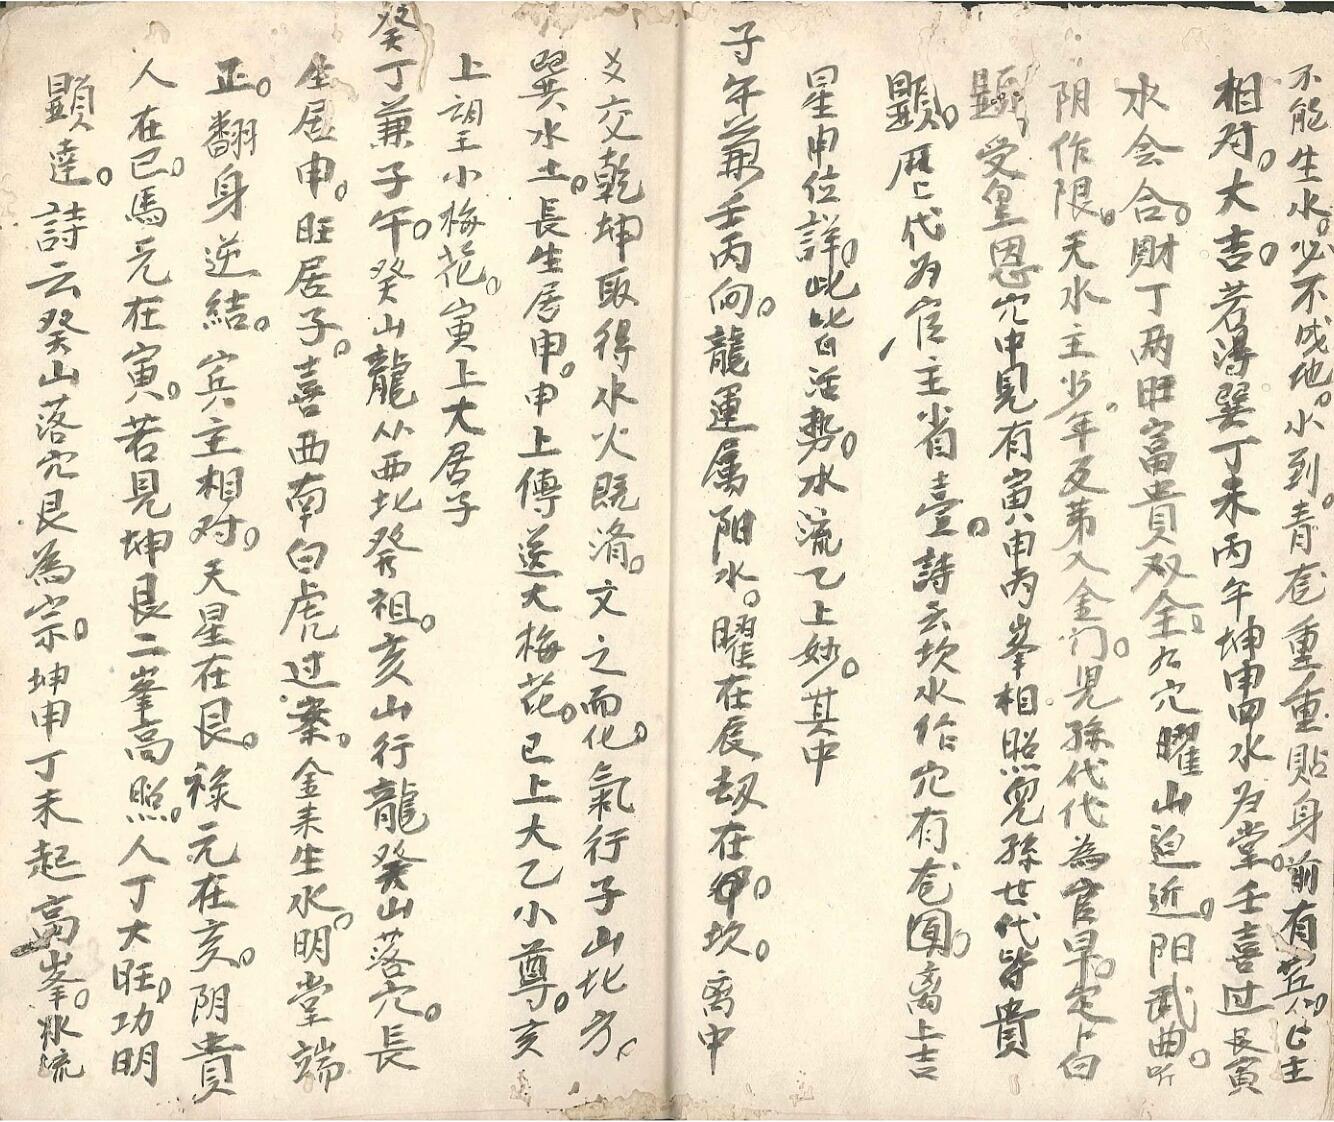 不能生水。必不成地。水到。青龙重重貼身前有
相对。大吉。若得巽丁未丙午坤申四水为堂。壬喜过艮寅
水会合。財丁两旺富貴双全。穴曜山迫近。阳武曲
阴作限。天水主少年及第入金门。児孫代代為官早。定上白
顯，受皇恩。穴中見有寅申丙峯相照児孫世代皆貴
顯。历代为官主省壹。詩云坎水作穴有龙圓。离上吉
星申位詳。此皆活势。水流乙上妙。其中
子午兼壬丙向。龍運属阳水。曜在辰劫在甲。坎。离中
爻交乾坤取得水火既済。文之而化。氣行子山北方。
巽水土。長生居申。申上傳送大梅花。巳上大乙小尊。亥
上詔王小梅花。寅上大居子
癸丁兼子午。癸山龍从西北發祖。亥山行龍癸山落穴。長
生居申。旺居子。喜西南白虎过案。金来生水。明堂端
正。翻身逆結。賓主相对。天星在艮。祿元在亥。阴貴
人在巳。馬元在寅。若見坤艮二峯高照。人丁大旺。功明
顯達。詩云癸山落穴艮為宗。坤申丁未起高峯。水流